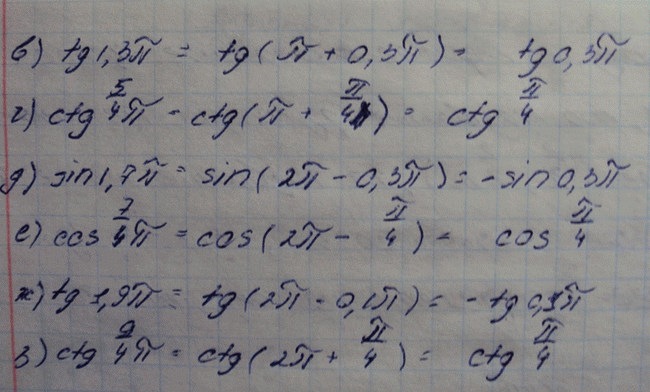 в) tg 1,3π = tg(π + 0,3π) = tg 0,3π
г) ctg 5/4 π = ctg(π + π/4) = ctg π/4
д) sin 1,7π = sin(2π - 0,3π) = - sin 0,3π
е) cos 7/4 π = cos(2π - π/4) = cos π/4
ж) tg 1,9π = tg(2π - 0,1π) = - tg 0,1π
з) ctg 9/4 π = ctg(2π + π/4) = ctg π/4